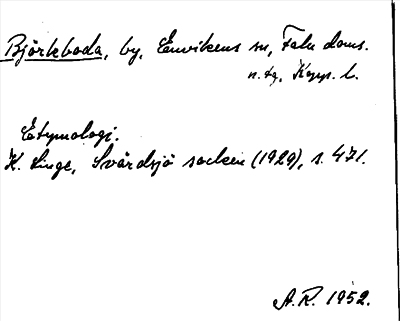 Björkboda, by, Envikens sn, Falu doms.
n. tg, Kopp. l.
Etymologi.
K. Linge, Svärdsjö socken (1929), s. 471.
A.R. 1952.